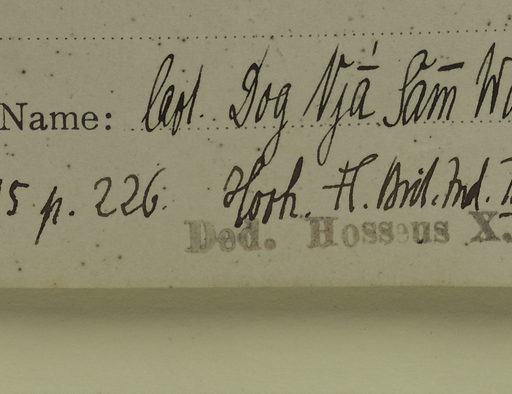 Name: Carl. Dog Njá Sām
5 p. 226. Hook. Fl. Brit. Ind.
Ded. Hosseus X.